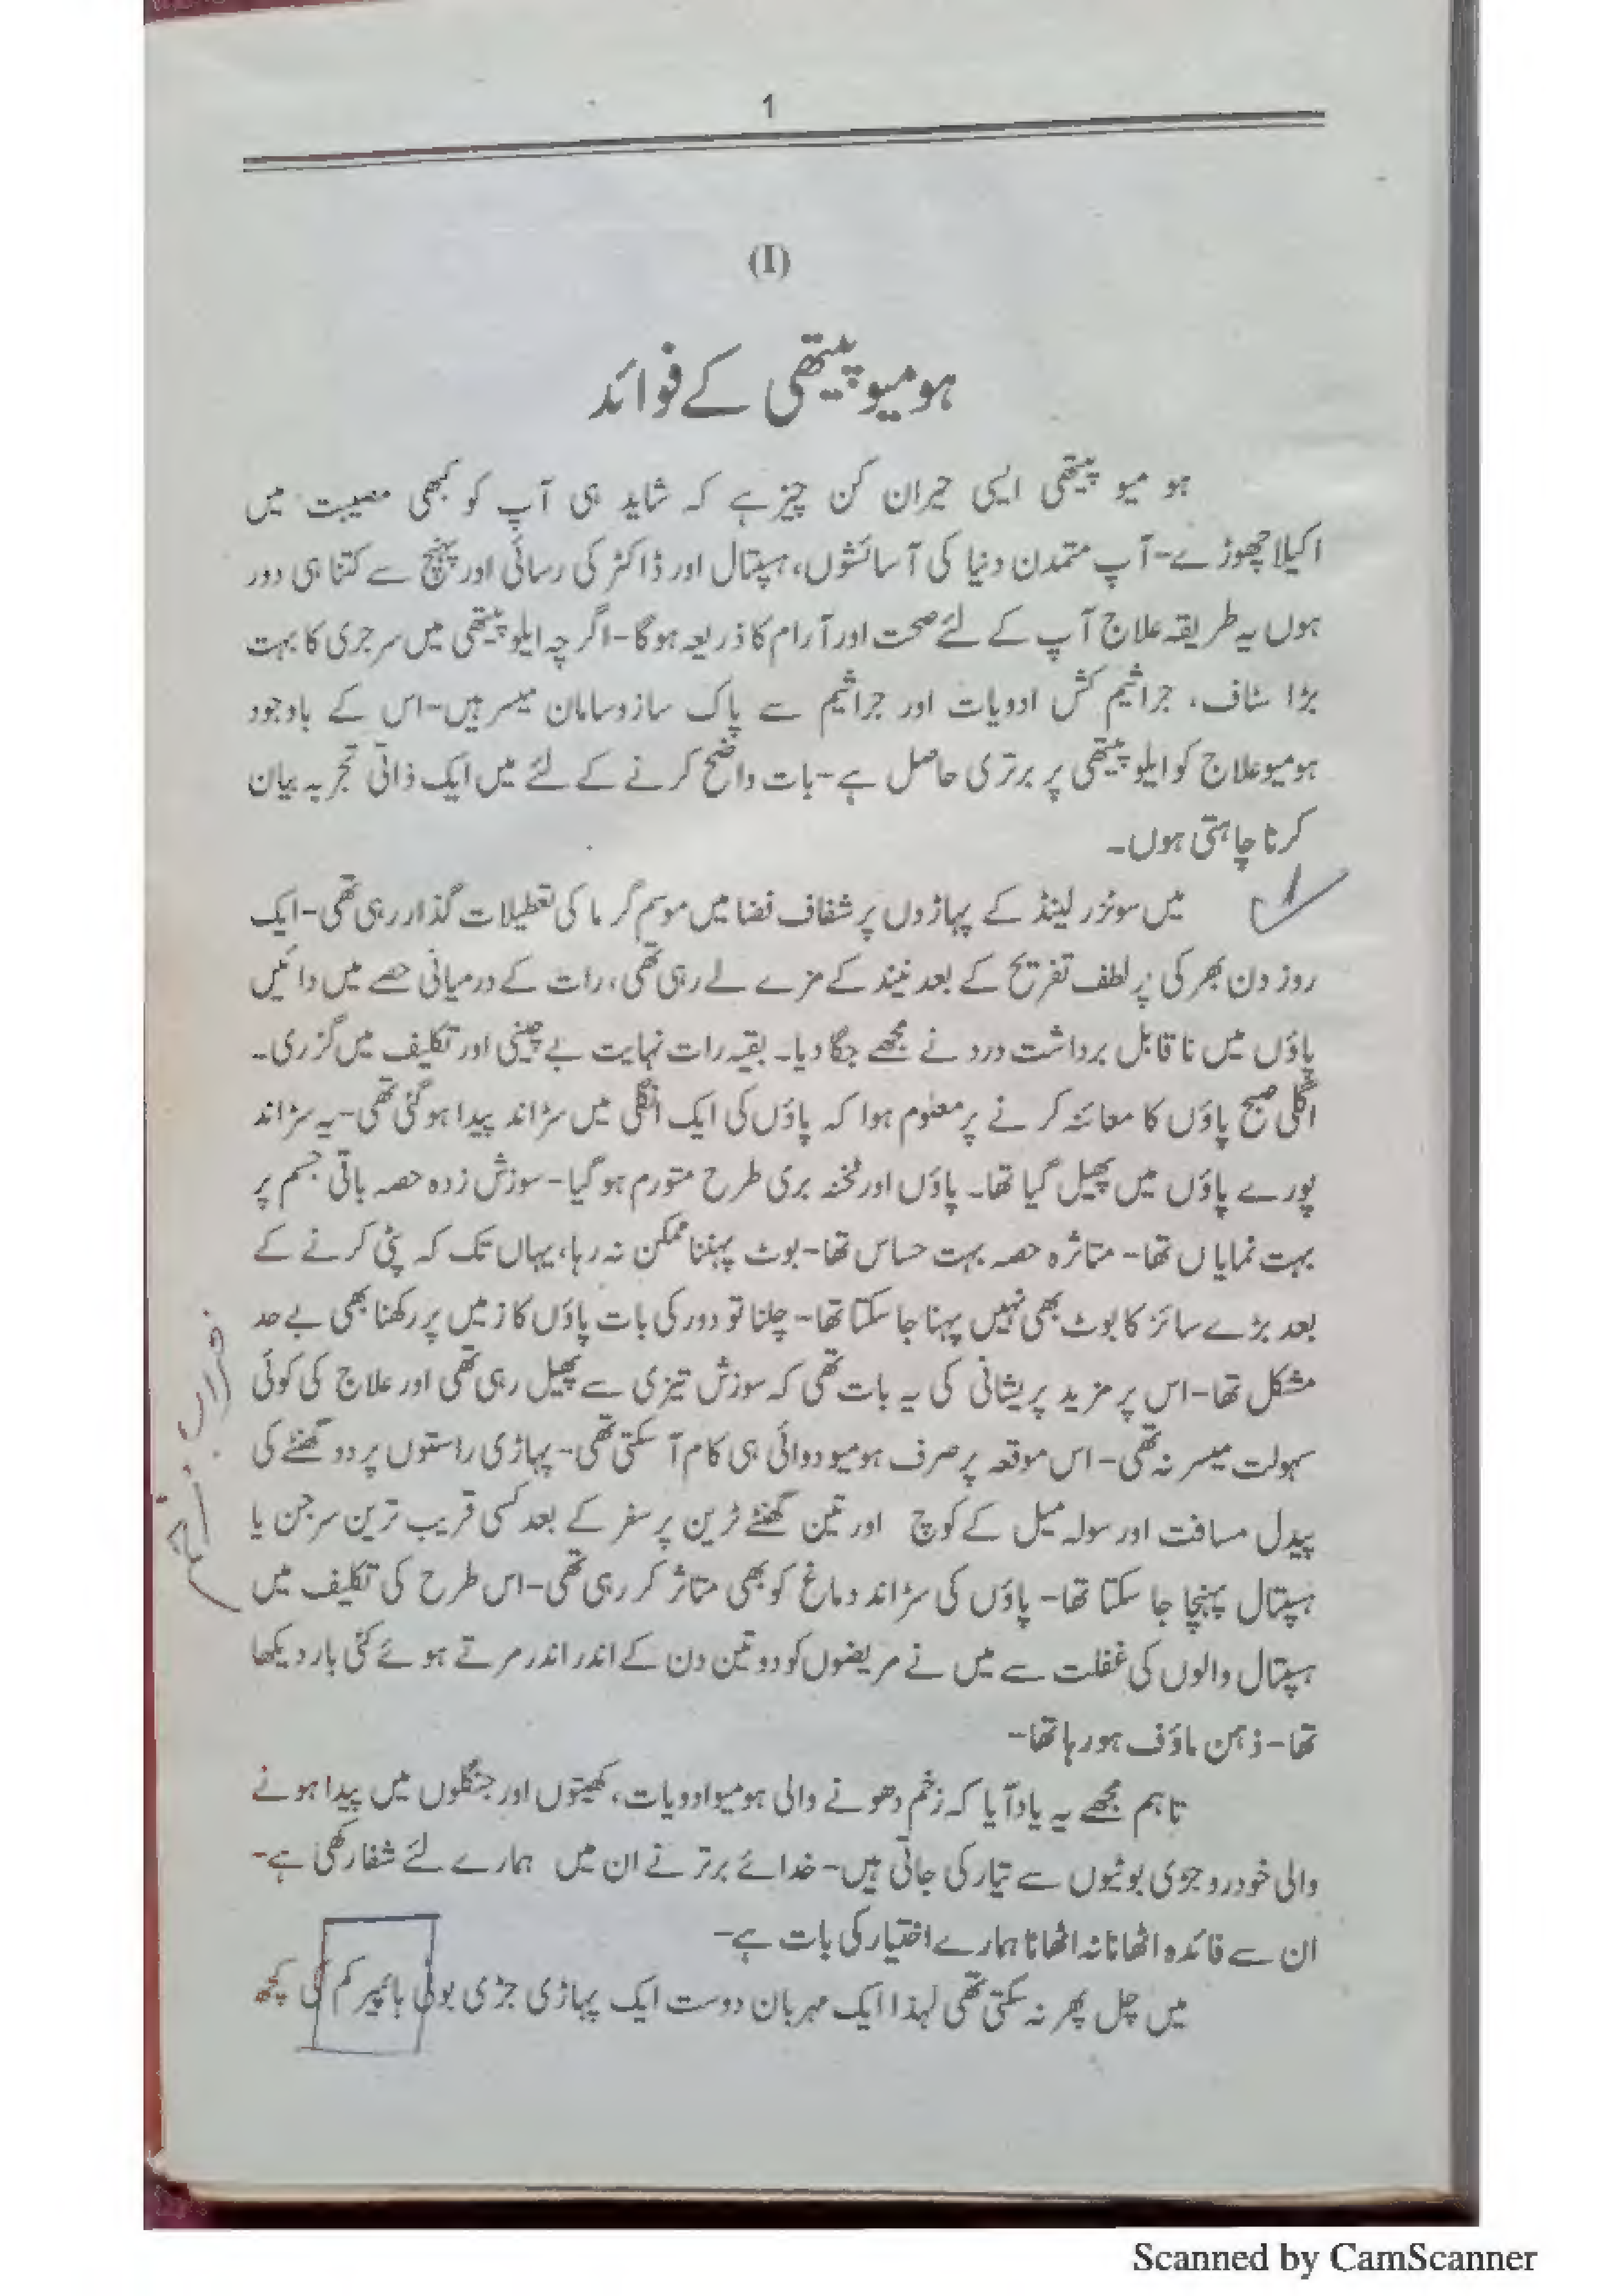 1
(I)
ہومیوپیتھی کے فوائد
ہو میو پیتھی ایسی حیران کن چیز ہے کہ شاید ہی آپ کو کبھی مصیبت میں
اکیلا چھوڑے-آپ متمدن دنیا کی آسائشوں، ہسپتال اور ڈاکٹر کی رسائی اور پہنچ سے کتنا ہی دور
ہوں یہ طریقہ علاج آپ کے لئے صحت اور آرام کا ذریعہ ہوگا-اگرچہ ایلوپیتھی میں سرجری کا بہت
بڑا سٹاف، جراثیم کش ادویات اور جراثیم سے پاک سازوسامان میسر ہیں-اس کے باوجود
ہومیوعلاج کو ایلوپیتھی پر برتری حاصل ہے-بات واضح کرنے کے لئے میں ایک ذاتی تجربہ بیان
کرنا چاہتی ہوں۔
میں سوئزرلینڈ کے پہاڑوں پر شفاف فضا میں موسم گرما کی تعطیلات گذار رہی تھی-ایک
روز دن بھر کی پرلطف تفریح کے بعد نیند کے مزے لے رہی تھی، رات کے درمیانی حصے میں دائیں
پاؤں میں ناقابل برداشت درد نے مجھے جگا دیا۔ بقیہ رات نہایت بے چینی اور تکلیف میں گزری۔
اگلی صبح پاؤں کا معائنہ کرنے پر معلوم ہوا کہ پاؤں کی ایک انگلی میں سڑاند پیدا ہوگئی تھی-یہ سڑاند
پورے پاؤں میں پھیل گیا تھا۔ پاؤں اور ٹخنہ بری طرح متورم ہوگیا-سوزش زدہ حصہ باقی جسم پر
بہت نمایاں تھا- متاثرہ حصہ بہت حساس تھا-بوٹ پہننا ممکن نہ رہا، یہاں تک کہ پٹی کرنے کے
بعد بڑے سائز کا بوٹ بھی نہیں پہنا جا سکتا تھا- چلنا تو دور کی بات پاؤں کا زمیں پر رکھنا بھی بے حد
مشکل تھا-اس پر مزید پریشانی کی یہ بات تھی کہ سوزش تیزی سے پھیل رہی تھی اور علاج کی کوئی
سہولت میسر نہ تھی-اس موقعہ پر صرف ہومیودوائی ہی کام آ سکتی تھی- پہاڑی راستوں پر دو گھنٹے کی
پیدل مسافت اور سولہ میل کے کوچ اور تین گھنٹے ٹرین پر سفر کے بعد کسی قریب ترین سرجن یا
ہسپتال پہنچا جا سکتا تھا- پاؤں کی سڑاند دماغ کو بھی متاثر کر رہی تھی-اس طرح کی تکلیف میں
ہسپتال والوں کی غفلت سے میں نے مریضوں کو دو تین دن کے اندر اندر مرتے ہوئے کئی بار دیکھا
تھا-ذہن ماؤف ہو رہا تھا-
تاہم مجھے یہ یاد آیا کہ زخم دھونے والی ہومیوادویات، کھیتوں اور جنگلوں میں پیدا ہونے
والی خودرو جڑی بوٹیوں سے تیار کی جاتی ہیں-خدائے برتر نے ان میں ہمارے لئے شفا رکھی ہے-
ان سے فائدہ اٹھانا نہ اٹھانا ہمارے اختیار کی بات ہے-
میں چل پھر نہ سکتی تھی لہذا ایک مہربان دوست ایک پہاڑی جڑی بوٹی ہائپیرکم کی کچھ
Scanned by CamScanner